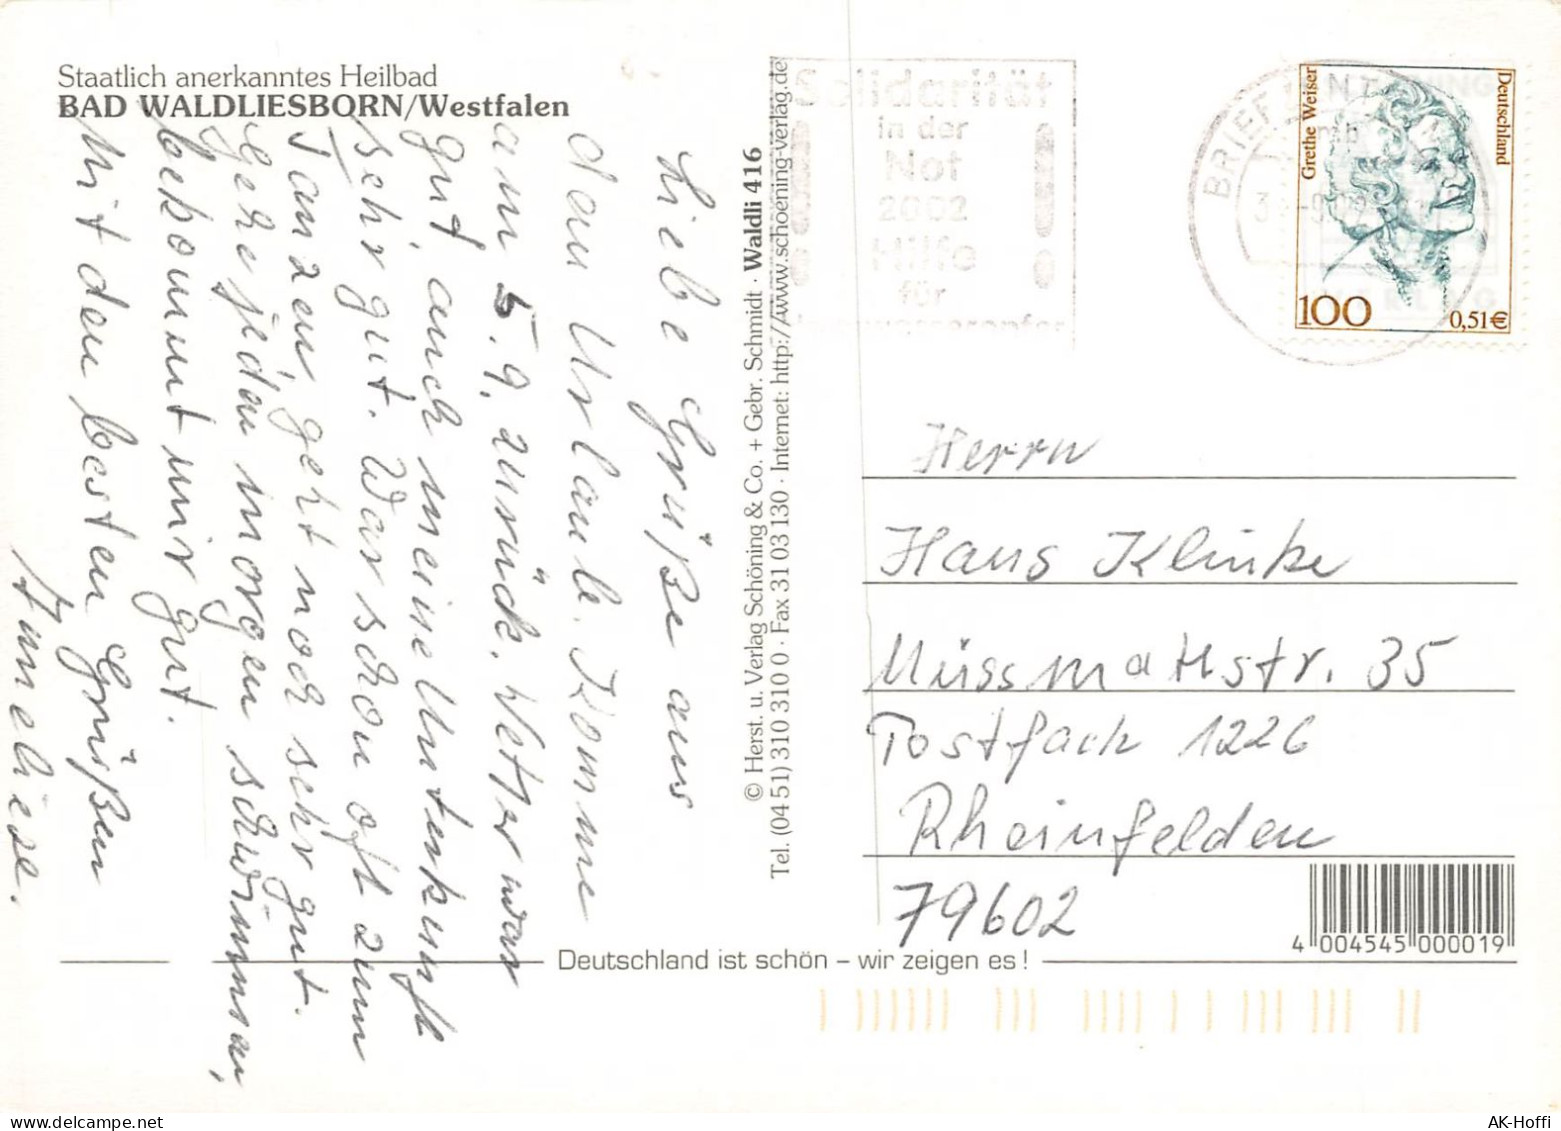 Staatlich anerkanntes Heilbad
BAD WALDLIESBORN/Westfalen
Liebe Grüße aus
dem Urlaub. Komme
am 5.9. zurück. Wetter war
gut, auch meine Unterkunft
sehr gut. War schon oft zum
Tanzen, geht noch sehr gut.
Gehe jeden morgen schwimmen,
bekommt mir gut.
Mit den besten Grüßen
Anneliese.
© Herst. u. Verlag Schöning & Co. + Gebr. Schmidt · Waldli 416
Tel. (04 51) 310 310 0 · Fax 31 03 130 · Internet: http://www.schoening-verlag.de
Solidarität
in der
Not
2002
Hilfe
für
BRIEF
Grethe Weiser
Deutschland
100
0,51€
Herrn
Hans Klinke
Müssmattstr. 35
Postfach 1226
Rheinfelden
79602
4 004545 000019
Deutschland ist schön – wir zeigen es!
AK-Hoffi